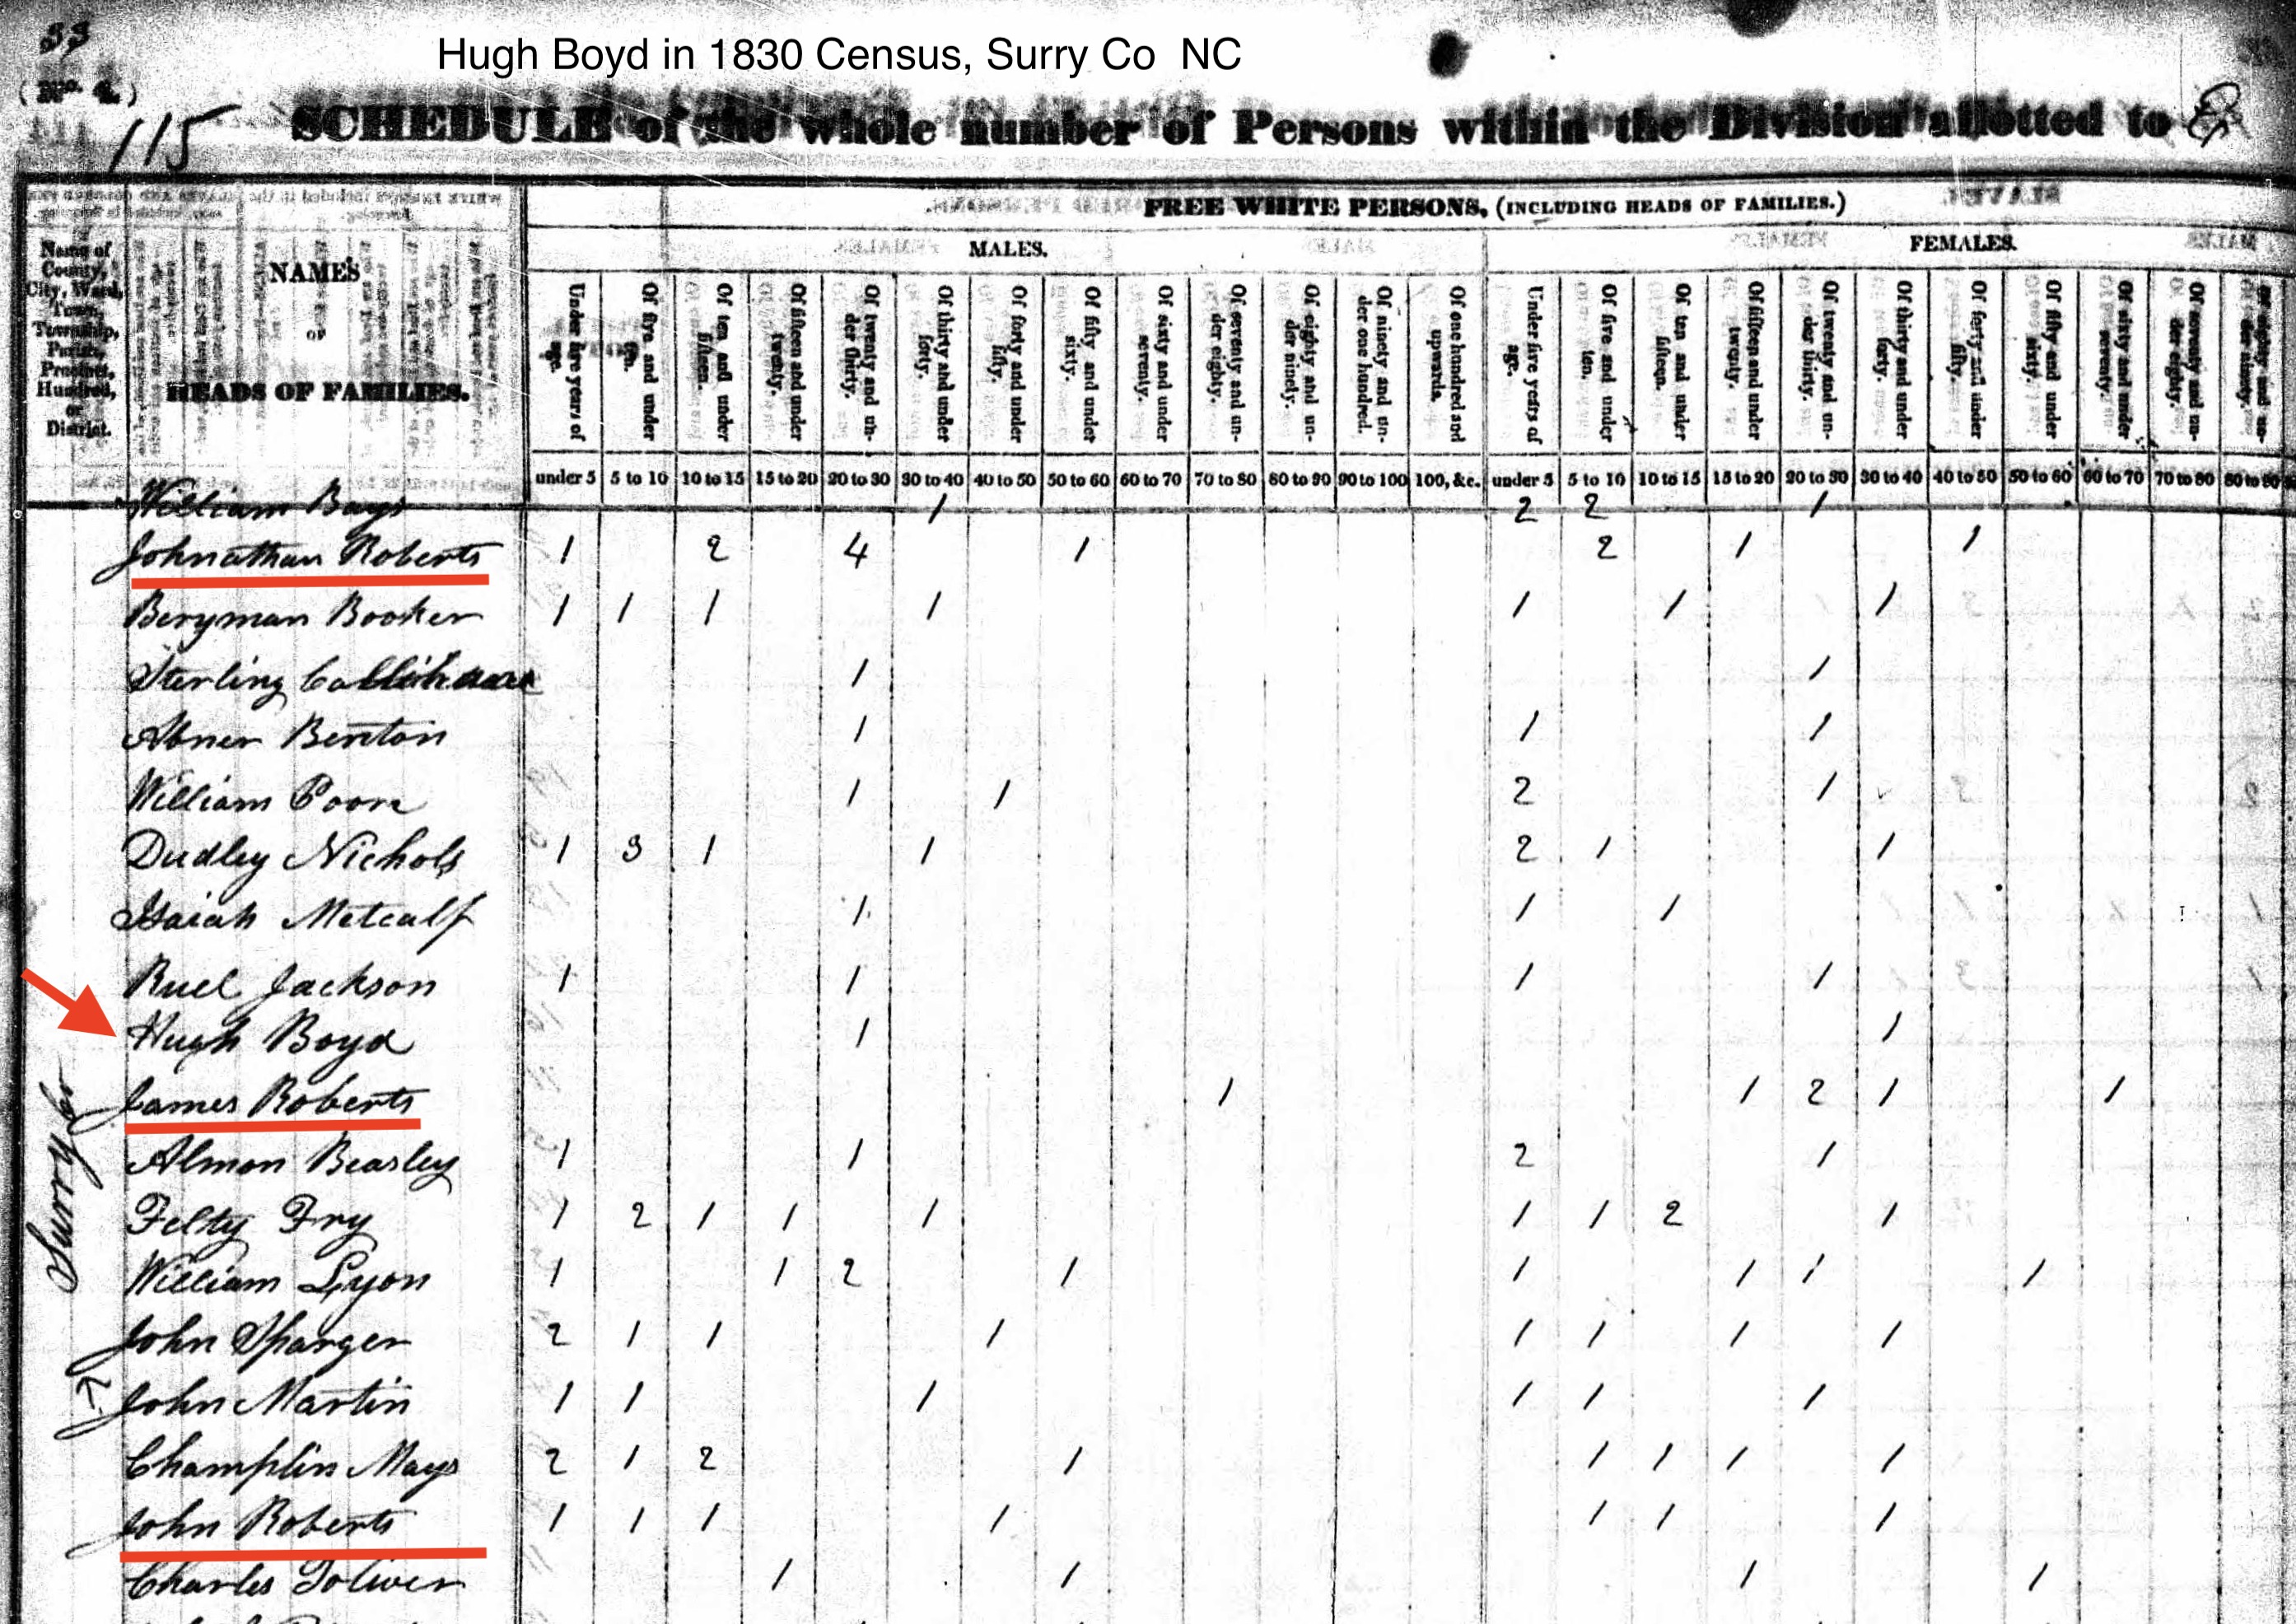 33
Hugh Boyd in 1830 Census, Surry Co NC
115
SCHEDULE of the whole number of Persons within the Division allotted to
FREE WHITE PERSONS, (INCLUDING HEADS OF FAMILIES.)
MALES. FEMALES.
Name of County, City, Ward, Town, Township, Parish, Precinct, Hundred, or District.
NAMES
OF
HEADS OF FAMILIES.
Under five years of age. Of five and under ten. Of ten and under fifteen. Of fifteen and under twenty. Of twenty and under thirty. Of thirty and under forty. Of forty and under fifty. Of fifty and under sixty. Of sixty and under seventy. Of seventy and under eighty. Of eighty and under ninety. Of ninety and under one hundred. Of one hundred and upwards. Under five years of age. Of five and under ten. Of ten and under fifteen. Of fifteen and under twenty. Of twenty and under thirty. Of thirty and under forty. Of forty and under fifty. Of fifty and under sixty. Of sixty and under seventy. Of seventy and under eighty. Of eighty and under ninety.
under 5 5 to 10 10 to 15 15 to 20 20 to 30 30 to 40 40 to 50 50 to 60 60 to 70 70 to 80 80 to 90 90 to 100 100, &c. under 5 5 to 10 10 to 15 15 to 20 20 to 30 30 to 40 40 to 50 50 to 60 60 to 70 70 to 80 80 to 90
William Bays 1 2 2 1
Johnathan Roberts 1 2 4 1 2 1 1
Beryman Booker 1 1 1 1 1 1 1
Sterling 1 1
Abner Benton 1 1 1
William Poore 1 1 2 1
Dudley Nichols 1 3 1 1 2 1 1
Isaiah Metcalf 1 1 1
Ruel Jackson 1 1 1 1
Hugh Boyd 1 1
James Roberts 1 1 2 1 1
Almon Beasley 1 1 2 1
Felty Fry 1 2 1 1 1 1 1 2 1
William Lyon 1 1 2 1 1 1 1 1
John Sparger 2 1 1 1 1 1 1 1
John Martin 1 1 1 1 1 1
Champlin Mays 2 1 2 1 1 1 1 1
John Roberts 1 1 1 1 1 1 1
Charles Toliver 1 1 1 1
Surry Co